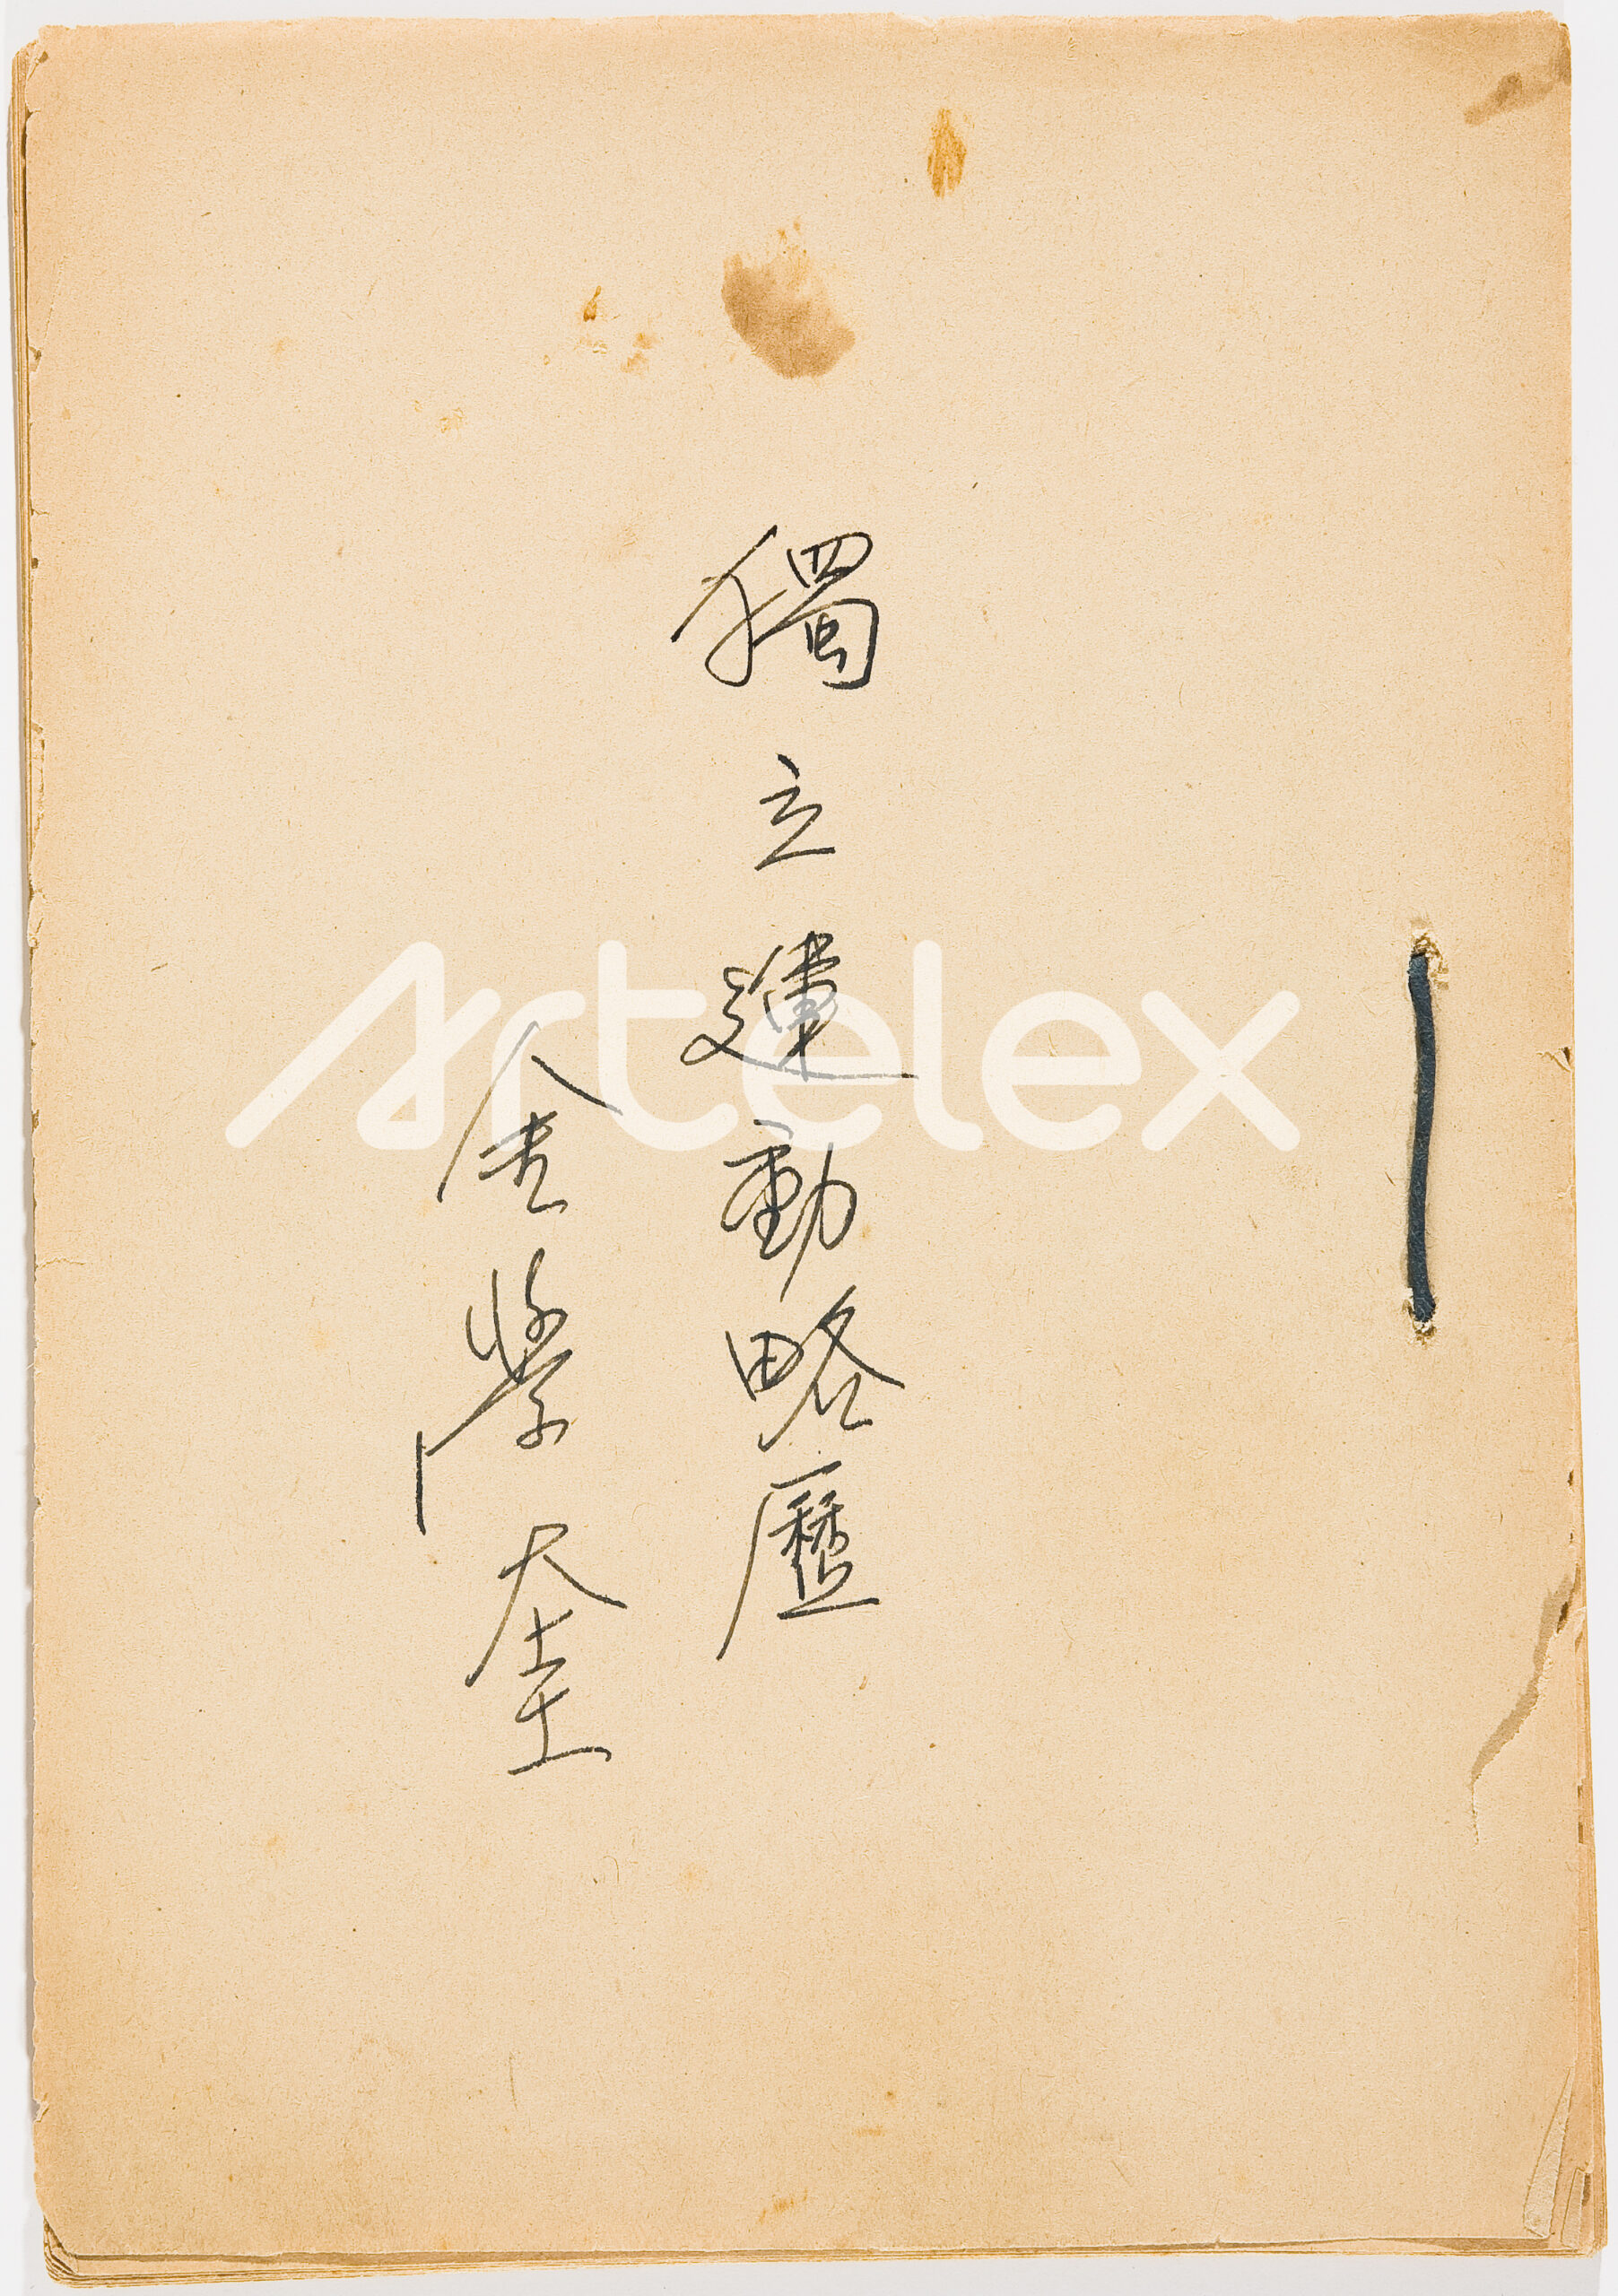 獨立運動略歷
金學奎
Artelex